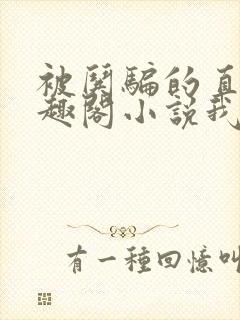 被鬨騙的直
趣閣小說我
有一種回憶叫